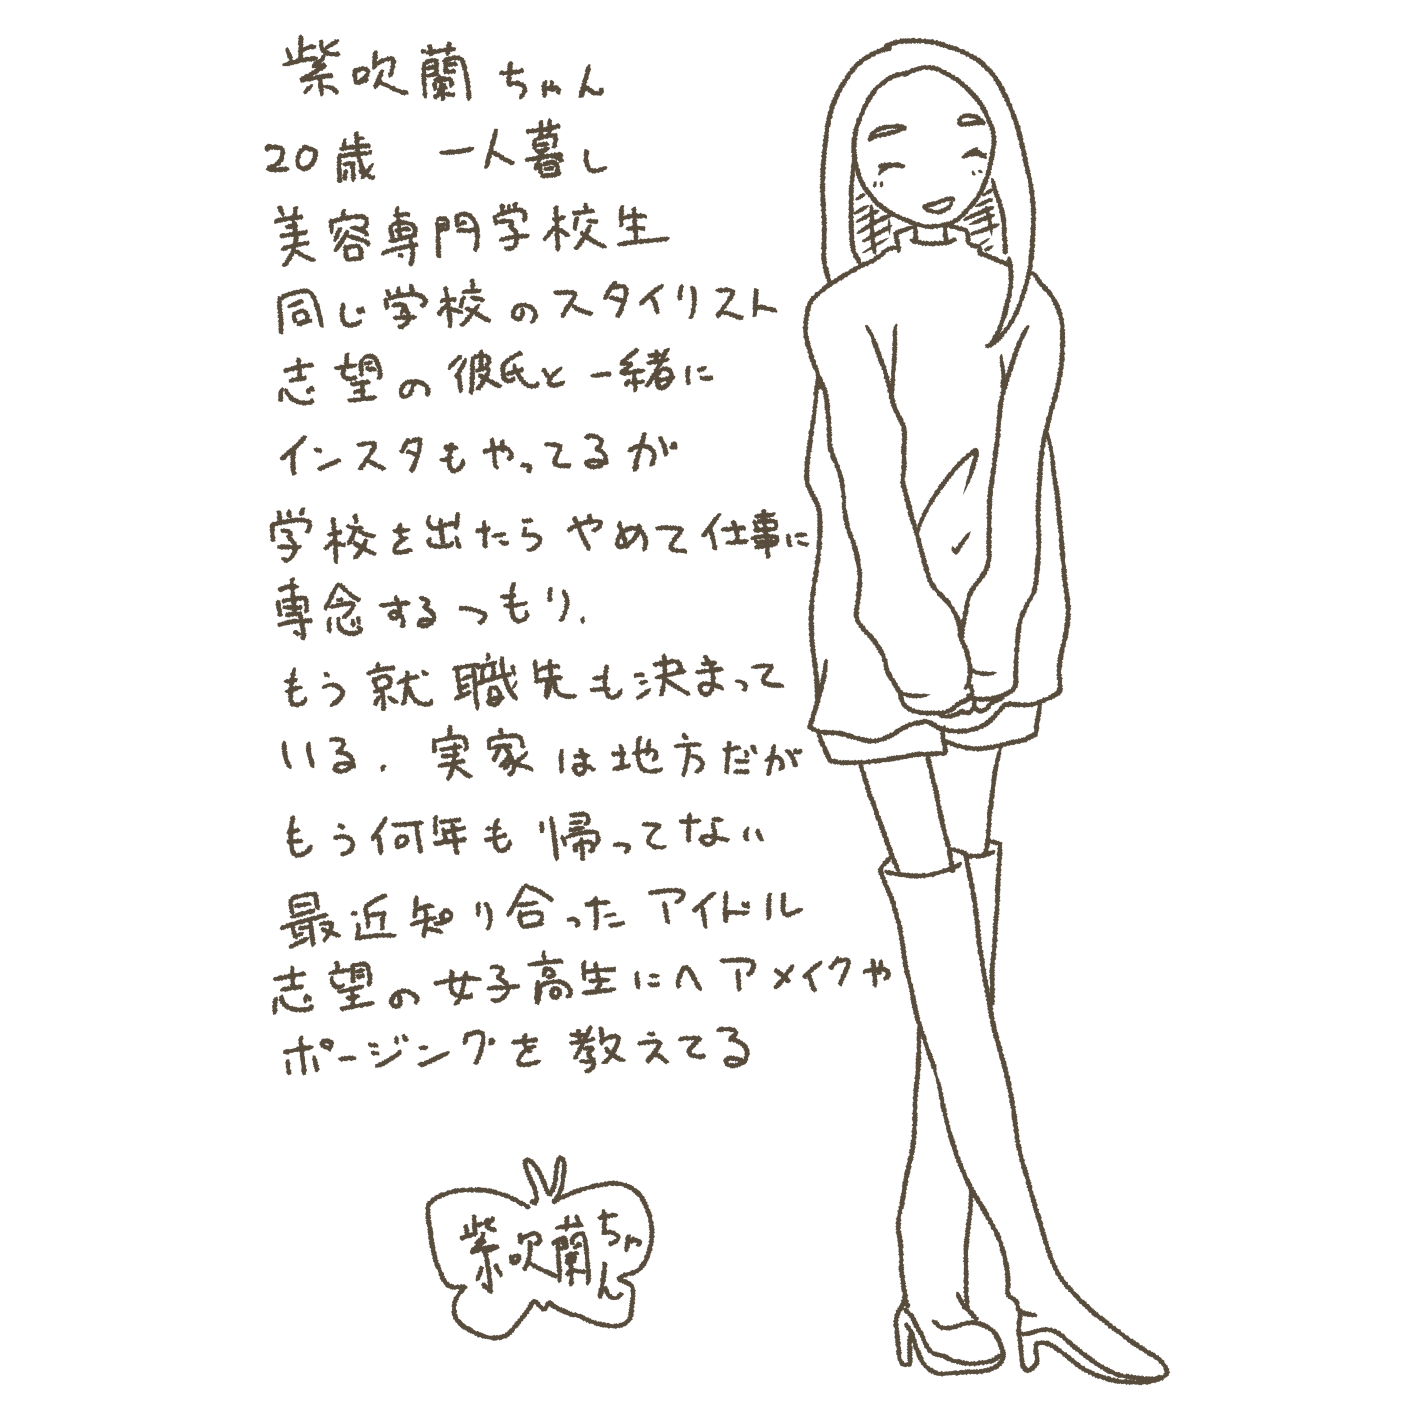 紫吹蘭ちゃん
20歳 一人暮し
美容専門学校生
同じ学校のスタイリスト
志望の彼氏と一緒に
インスタもやってるが
学校を出たらやめて仕事に
専念するつもり.
もう就職先も決まって
いる. 実家は地方だが
もう何年も帰ってない
最近知り合ったアイドル
志望の女子高生にヘアメイクや
ポージングを教えてる
紫吹蘭ちゃ
ん